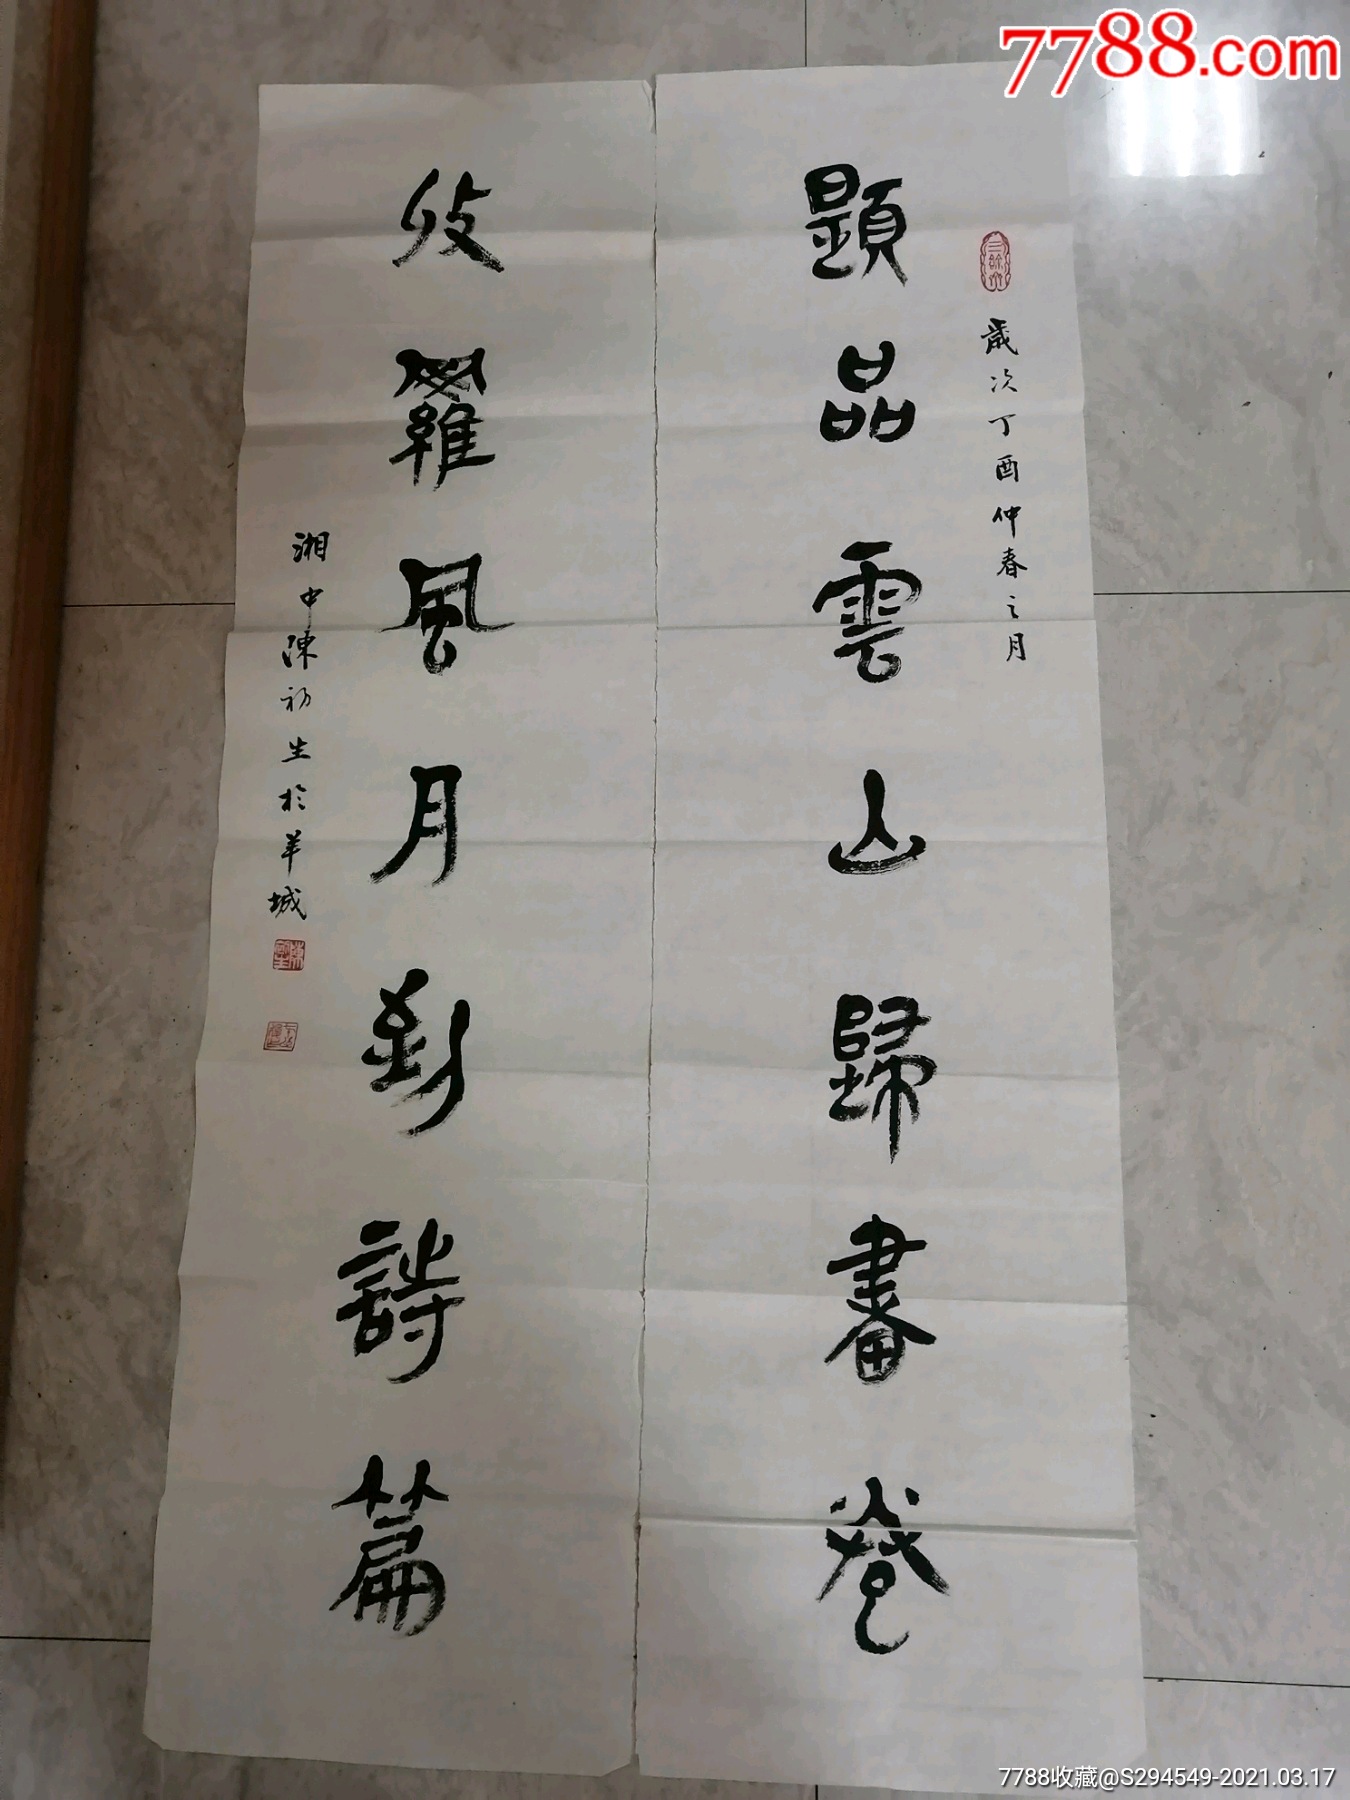 7788.com
歲次丁酉仲春之月
題品雲山歸畫卷
收羅風月到詩篇
湘中陳初生於羊城
7788收藏@S294549-2021.03.17